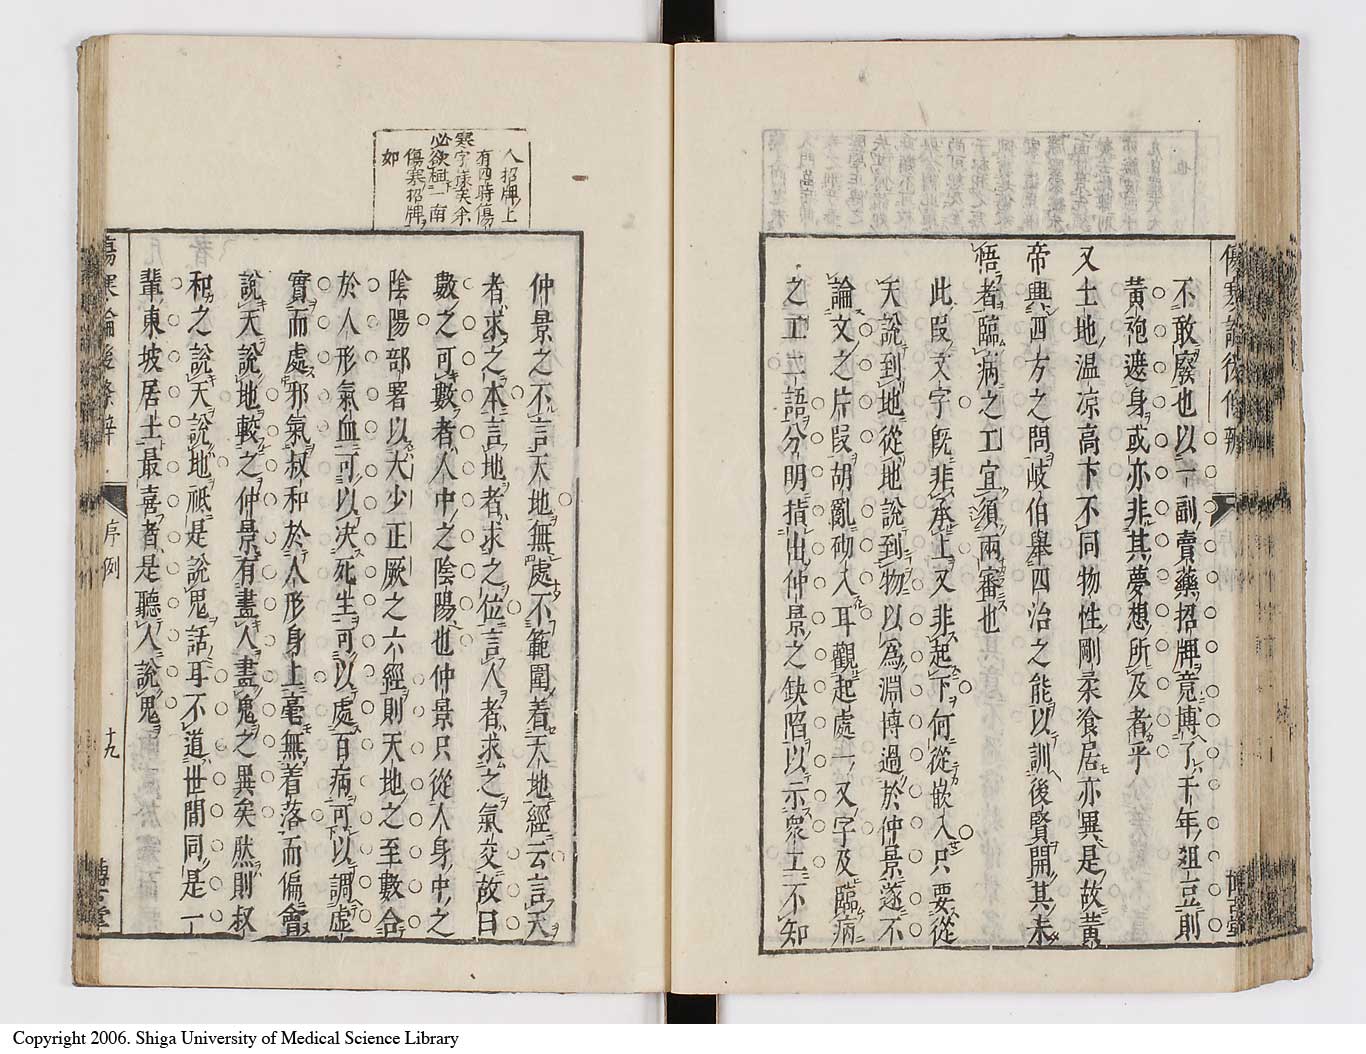 傷寒論後條辨
不敢廢也以一訓賣藥招牌竟博了千年俎豆則
黃袍邊身或亦非其夢想所及者乎
又土地温凉高下不同物性剛柔飡居亦異是故黃
帝興四方之問岐伯舉四治之能以訓後賢開其未
悟者臨病之工宜須兩審也
此段文字旣非承上又非起下何從嵌入只要從
天說到地從地說到物以為淵博過於仲景遂不
論文之片段胡亂砌入耳觀起處一又字及臨病
之工二語分明指出仲景之缺陷以示衆工不知
人招牌上
有四時傷
寒字樣矣余
必欲
傷寒招牌
如
仲景之不言天地無處不範圍着天地經云言天
者求之本言地者求之位言人者求之氣交故曰
數之可數者人中之陰陽也仲景只從人身中之
陰陽部署以大少正厥之六經則天地之至數合
於人形氣血可以决死生可以處百病可以調虛
實而處邪氣叔和於人形身上毫無着落而偏會
說天說地較之仲景有畫人畫鬼之異矣然則叔
和之說天說地祇是說鬼話耳不道世間同是一
輩東坡居士最喜者是聽人說鬼
傷寒論後條辨 序例 十九 博古堂
Copyright 2006. Shiga University of Medical Science Library